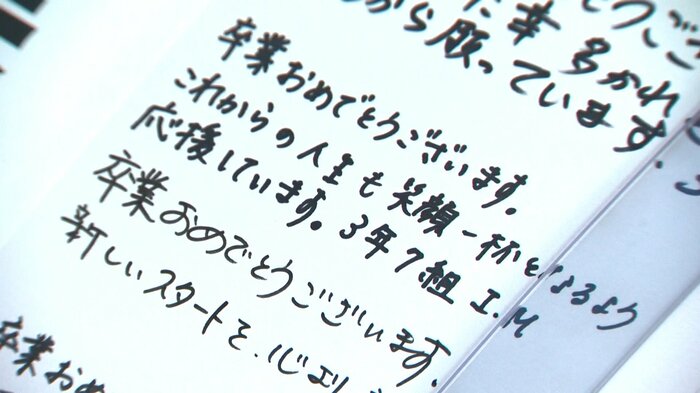 とうござ
た幸多かれ
から願っています。
卒業おめでとうございます。
これからの人生も笑顔一杯となるよう
応援しています。3年7組 I.M
卒業おめでとうございます。
新しいスタートを、心より
卒業おめ